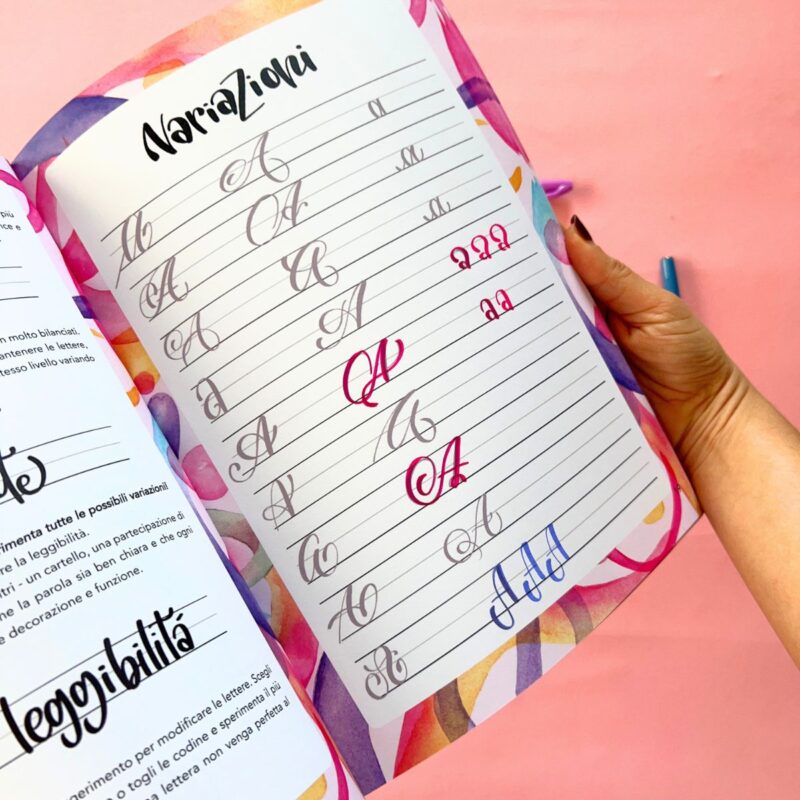 più
nce e
n molto bilanciati.
antenere le lettere,
tesso livello variando
te
rimenta tutte le possibili variazioni!
re la leggibilità.
ltri - un cartello, una partecipazione di
ne la parola sia ben chiara e che ogni
e decorazione e funzione.
leggibilitá
gerimento per modificare le lettere. Scegli
o togli le codine e sperimenta il più
na lettera non venga perfetta al
VariaZioni
A A a
A A a
A A a
a A a a a
A A a a
A A
A A
A A
A A A A